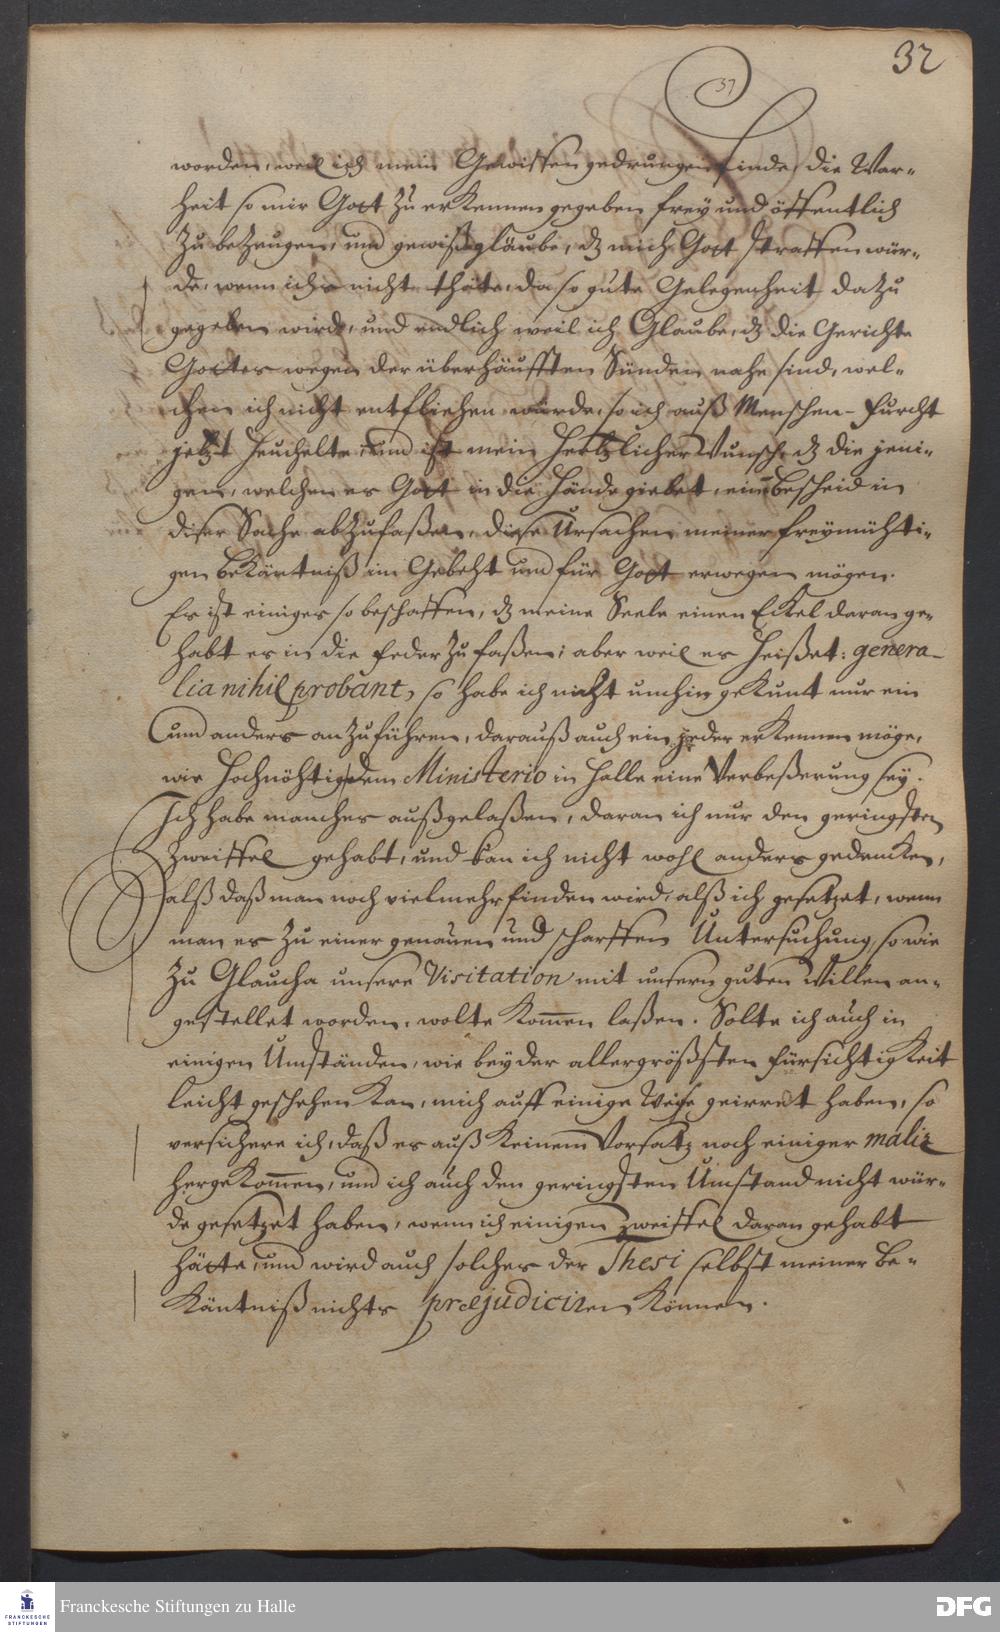 32
37
worden, weil ich mein Gewissen gedrungen finde, die War-
heit so mir Gott zu erkennen gegeben frey und öffentlich
zu bezeugen, und gewiß gläube, dz mich Gott straffen wür-
de, wenn ichs nicht thäte, da so gute Gelegenheit dazu
gegeben wird, und endlich weil ich Glaube, dz die Gerichte
Gottes wegen der überhäufften Sünden nahe sind, wel-
chen ich nicht entfliehen würde, so ich auß Menschen-Furcht
jetzt heuchelte, und ist mein hertzlicher Wunsch, dz die jeni-
gen, welchen es Gott in die Hände giebet, einen bescheid in
diser Sache abzufaßen, diese Ursachen meiner freymühti-
gen bekäntniß im Gebeht und für Gott erwegen mögen.
Es ist einiges so beschaffen, dz meine Seele einen Eckel daran ge-
habt es in die Feder zu faßen; aber weil es heißet: genera-
lia nihil probant, so habe ich nicht umhin gekunt nur ein
und anders anzuführen, darauß auch ein jeder erkennen möge,
wie hochnöhtig dem Ministerio in Halle eine Verbeßerung sey.
Ich habe manches außgelaßen, daran ich nur den geringsten
Zweiffel gehabt, und kan ich nicht wohl anders gedencken,
alß daß man noch vielmehr finden wird, alß ich gesetzet, wenn
man es zu einer genauen und scharffen Untersuchung, so wie
zu Glaucha unsere Visitation mit unsern guten Willen an-
gestellet worden, wolte kommen laßen. Solte ich auch in
einigen Umständen, wie bey der allergrößsten fürsichtigkeit
leicht geschehen kan, mich auff einige Weise geirret haben, so
versichere ich, daß es auß keinem Vorsatz noch einiger maliz
hergekommen, und ich auch den geringsten Umstand nicht wür-
de gesetzet haben, wenn ich einigen zweiffel daran gehabt
hätte, und wird auch solches der Thesi selbst meiner Be-
käntniß nichts præjudiciren können.
FRANCKESCHE STIFTUNGEN
Franckesche Stiftungen zu Halle
DFG